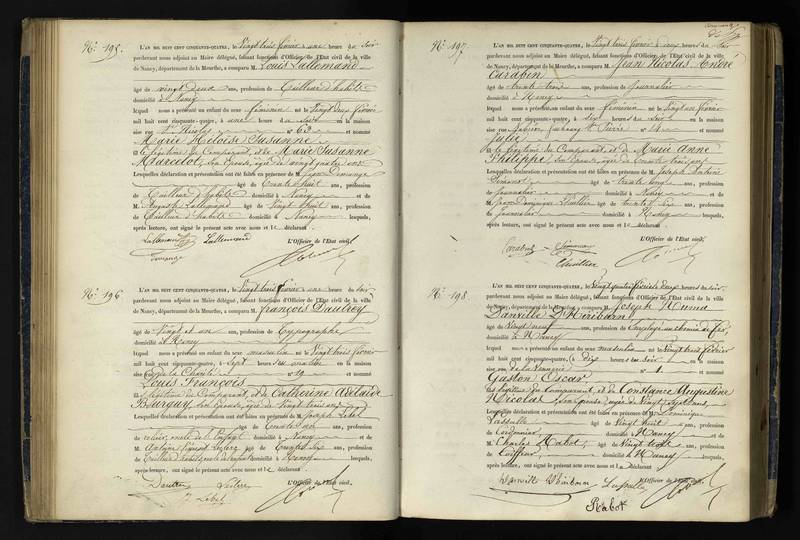 N.° 195.
L'AN MIL HUIT CENT CINQUANTE-QUATRE, le Vingt trois février à une heure du soir
pardevant nous adjoint au Maire délégué, faisant fonctions d'Officier de l'Etat civil de la ville
de Nancy, département de la Meurthe, a comparu M. Louis Lallemand
âgé de vingt deux ans, profession de Tailleur d'habits
domicilié à Nancy
lequel nous a présenté un enfant du sexe féminin né le Vingt deux février
mil huit cent cinquante-quatre, à une heure du soir en la maison
sise rue St Nicolas n° 63 et nommé
Marie Héloïse Susanne
le légitime du Comparant, et de Marie Susanne
Marcelot, son épouse, âgée de vingt quatre ans
Lesquelles déclaration et présentation ont été faites en présence de M. Jean Demange
âgé de trente huit ans, profession
de Tailleur d'habits domicilié à Nancy et de
M. Auguste Lallemand âgé de Vingt huit ans, profession
de Tailleur d'habits domicilié à Nancy lesquels,
après lecture, ont signé le présent acte avec nous et le déclarant
L'Officier de l'Etat civil,
Lallemand Lallemand
Demange
N.° 196
L'AN MIL HUIT CENT CINQUANTE-QUATRE, le Vingt trois février à une heure du soir
pardevant nous adjoint au Maire délégué, faisant fonctions d'Officier de l'Etat civil de la ville
de Nancy, département de la Meurthe, a comparu M. François Dautrey
âgé de Vingt et un ans, profession de Typographe
domicilié à Nancy
lequel nous a présenté un enfant du sexe masculin né le Vingt trois février
mil huit cent cinquante-quatre, à Sept heures du matin en la maison
sise rue de la Charité n° 19 et nommé
Louis François
le légitime du Comparant, et de Catherine Adélaïde
son épouse, âgée de Vingt trois ans
Lesquelles déclaration et présentation ont été faites en présence de M. Joseph Lebel
âgé de ans, profession
de domicilié à Nancy et de
M. Antoine Leclerc âgé de trente six ans, profession
de Tailleur domicilié à Nancy lesquels,
après lecture, ont signé le présent acte avec nous et le déclarant
L'Officier de l'Etat civil,
Dautrey Leclerc
J Lebel
N.° 197
L'AN MIL HUIT CENT CINQUANTE-QUATRE, le Vingt trois février à deux heures du soir
pardevant nous adjoint au Maire délégué, faisant fonctions d'Officier de l'Etat civil de la ville
de Nancy, département de la Meurthe, a comparu M. Jean Nicolas André
Carabin
âgé de trente trois ans, profession de Journalier
domicilié à Nancy
lequel nous a présenté un enfant du sexe féminin né le Vingt un février
mil huit cent cinquante-quatre, à dix heures du soir en la maison
sise rue Nabécor faubourg St Pierre n° 14 et nommé
Julie
le légitime du Comparant, et de Marie Anne
Philippe, son épouse, âgée de trente trois ans
Lesquelles déclaration et présentation ont été faites en présence de M. Joseph Antoine
Simonot âgé de trente cinq ans, profession
de Journalier domicilié à Nancy et de
M. Jean Dominique Thuillier âgé de trente six ans, profession
de Journalier domicilié à Nancy lesquels,
après lecture, ont signé le présent acte avec nous et le déclarant
L'Officier de l'Etat civil,
Carabin Simonot
Thuillier
N.° 198.
L'AN MIL HUIT CENT CINQUANTE-QUATRE, le Vingt quatre février à deux heures du soir
pardevant nous adjoint au Maire délégué, faisant fonctions d'Officier de l'Etat civil de la ville
de Nancy, département de la Meurthe, a comparu M. Joseph Numa
Danville D'Héribarn
âgé de Vingt neuf ans, profession de Employé au chemin de fer,
domicilié à Nancy
lequel nous a présenté un enfant du sexe masculin né le Vingt trois février
mil huit cent cinquante-quatre, à Dix heures du soir en la maison
sise rue n° 1 et nommé
Gaston Oscar
le légitime du Comparant, et de Constance Augustine
Nicolas, son épouse, âgée de Vingt sept ans,
Lesquelles déclaration et présentation ont été faites en présence de M. Dominique
Lassalle âgé de Vingt huit ans, profession
de Cordonnier domicilié à Nancy et de
M. Charles Rabot âgé de Vingt trois ans, profession
de Coiffeur domicilié à Nancy lesquels,
après lecture, ont signé le présent acte avec nous et le déclarant
L'Officier de l'Etat civil,
Danville D'Héribarn Lassalle
Rabot